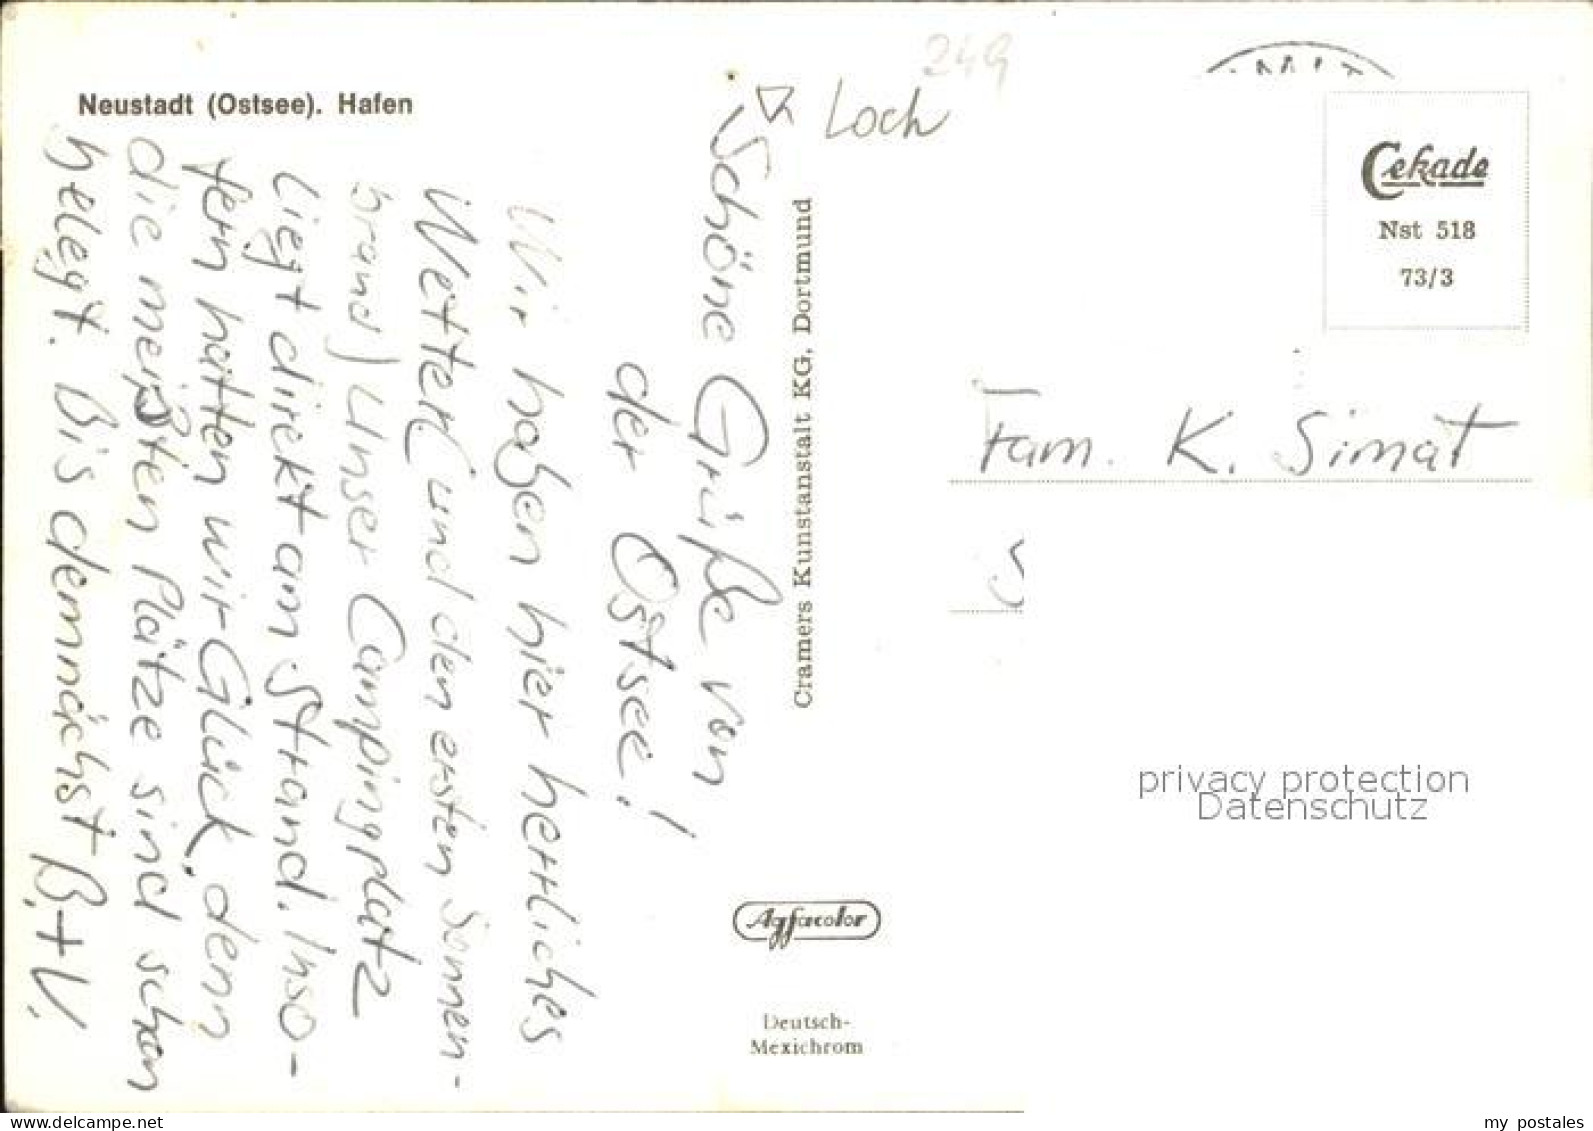 Neustadt (Ostsee). Hafen
249
Loch
Schöne Grüße von
der Ostsee!
Wir haben hier herrliches
Wetter (und den ersten Sonnen-
brand) Unser Campingplatz
liegt direkt am Strand. Inso-
fern hatten wir Glück, denn
die meißten Plätze sind schon
belegt. Bis demnächst B.+V.
Cramers Kunstanstalt KG, Dortmund
Cekade
Nst 518
73/3
Fam. K. Simat
privacy protection
Datenschutz
Agfacolor
Deutsch-
Mexichrom
www.delcampe.net
my_postales